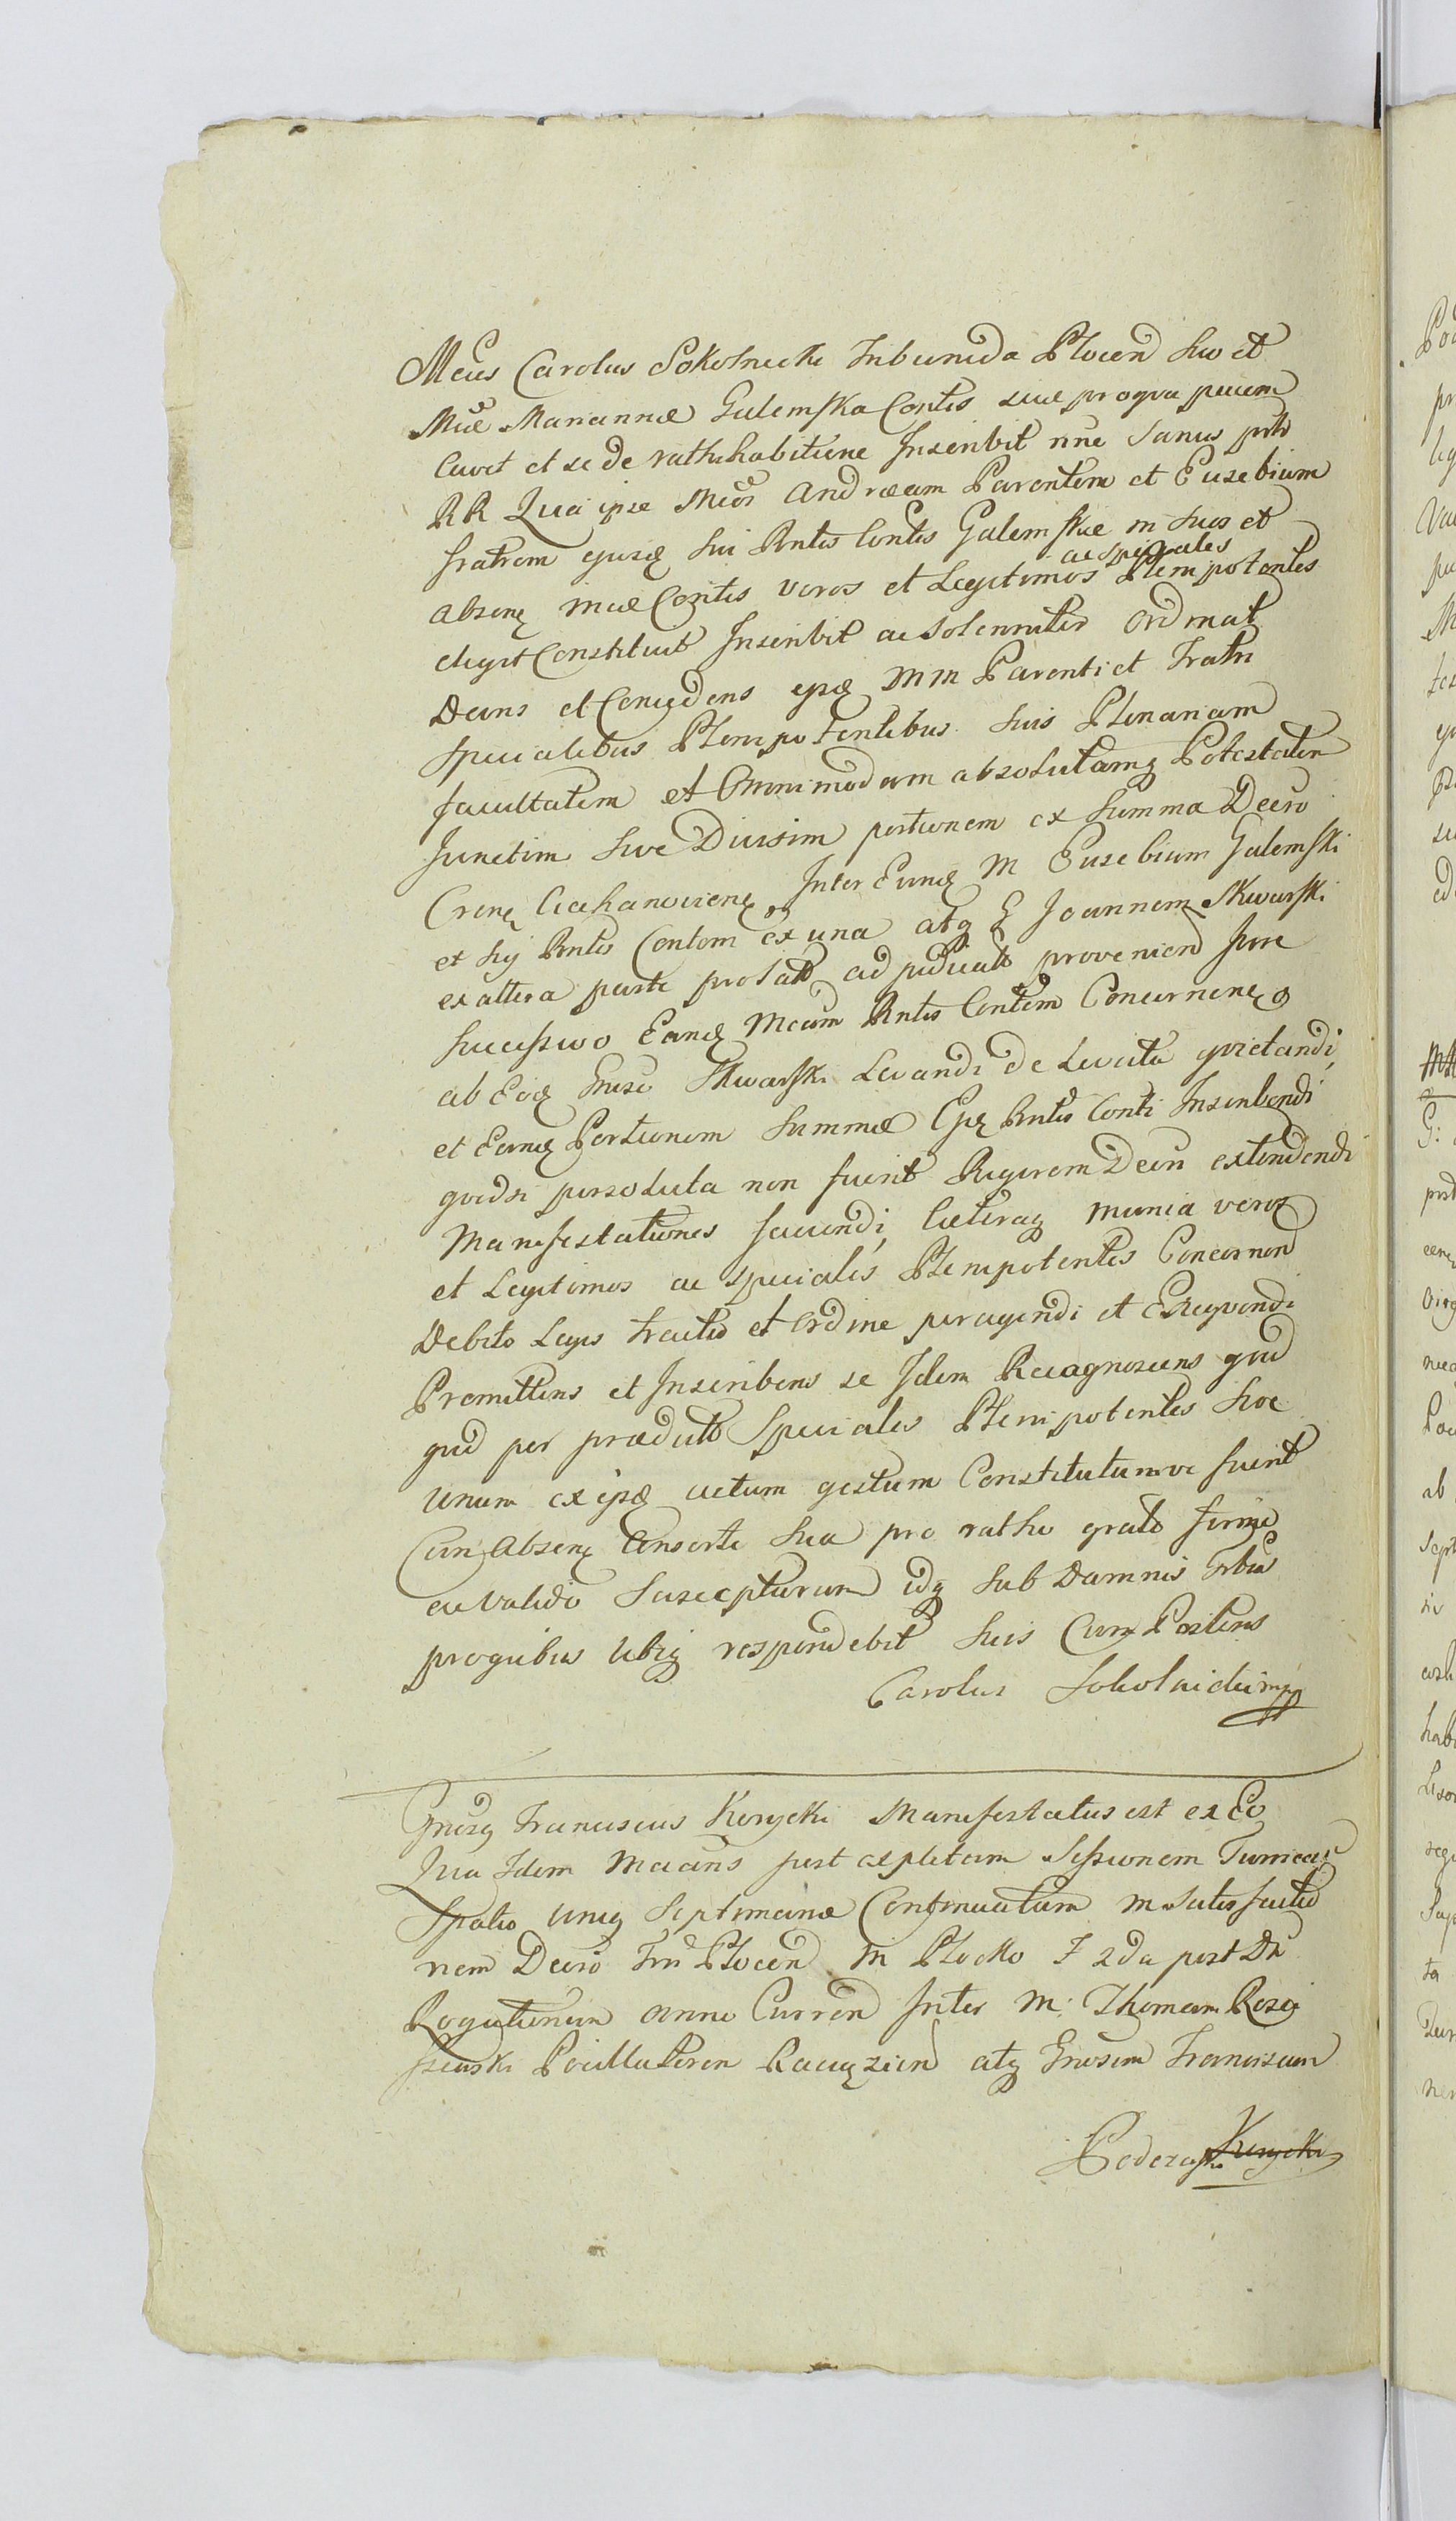 Mcus Carolus Sokolnicki Tribunida Plocen suo et
Mcae Mariannae Gulemska Contis suae pro qva pucem
cavet et se de rathihabitione Inscribit nne Sanus pntr
RR Qvia ipse Mcos Andraeam Parentem et Eusebium
fratrem ejusq sui Pntis Contis Gulemskie in suos et
ac speciales
absenq mcae Contis veros et Legitimos Plenipotentes
eligit Constituit Inscribit ac solenniter Ordinat
Dans et Concedens ejsq MM Parenti et Fratri
specialibus Plenipotentibus suis Plenariam
facultatem et Omnimodam absolutamq Potestatem
Junctim sive Divisim portionem ex Summa Decro
Crenq Ciechanoviene Inter Eunq M Eusebium Gulemski
et sij Pntis Contem ex una atq G Joannem Skwarski
ex altera parte prolato adjudicato provenien Jure
successivo Eanq Mcam Pntis Contem Concernenq
ab Eoq Gnoso Skwarski Levandi de Levata qvietandi,
et Eamq Portionem Summae Ejq Pntis Conti Inscribendi
qvodsi persoluta non fuerit Rigorem Decri extendendi
Manifestationes faciendi, Caeteraq munia veros
et Legitimos ac speciales Plenipotentes Concernen
Debito Legis tractu et Ordine peragendi et Exeqvendi
Promittens et Inscribens se Idem Recognoscens qvid
qvid per praedicto Speciales Plenipotentes sive
unum ex ipsq actum gestum Constitutumve fuerit
Cum Absenq Consorte sua pro ratho grato firmo
ac valido Suscepturum idq sub Damnis Trbia
pro qvibus ubiq respondebit suis Cum Posteris
Carolus Sokolnicki mpp
Gnosq Franciscus Kerycki Manifestatus est ex Eo
Qvia Idem Macans post expletam Sessionem Turricae
spatio uniq Septimanae Continuatam in satisfactio
nem Decro Trn Plocen in Plocko F 2da post Dn
Rogationum anno Curren Inter M: Thomam Rosci
szewski Pocillatorem Raciązien atq Gnosum Franciscum
Kerycki